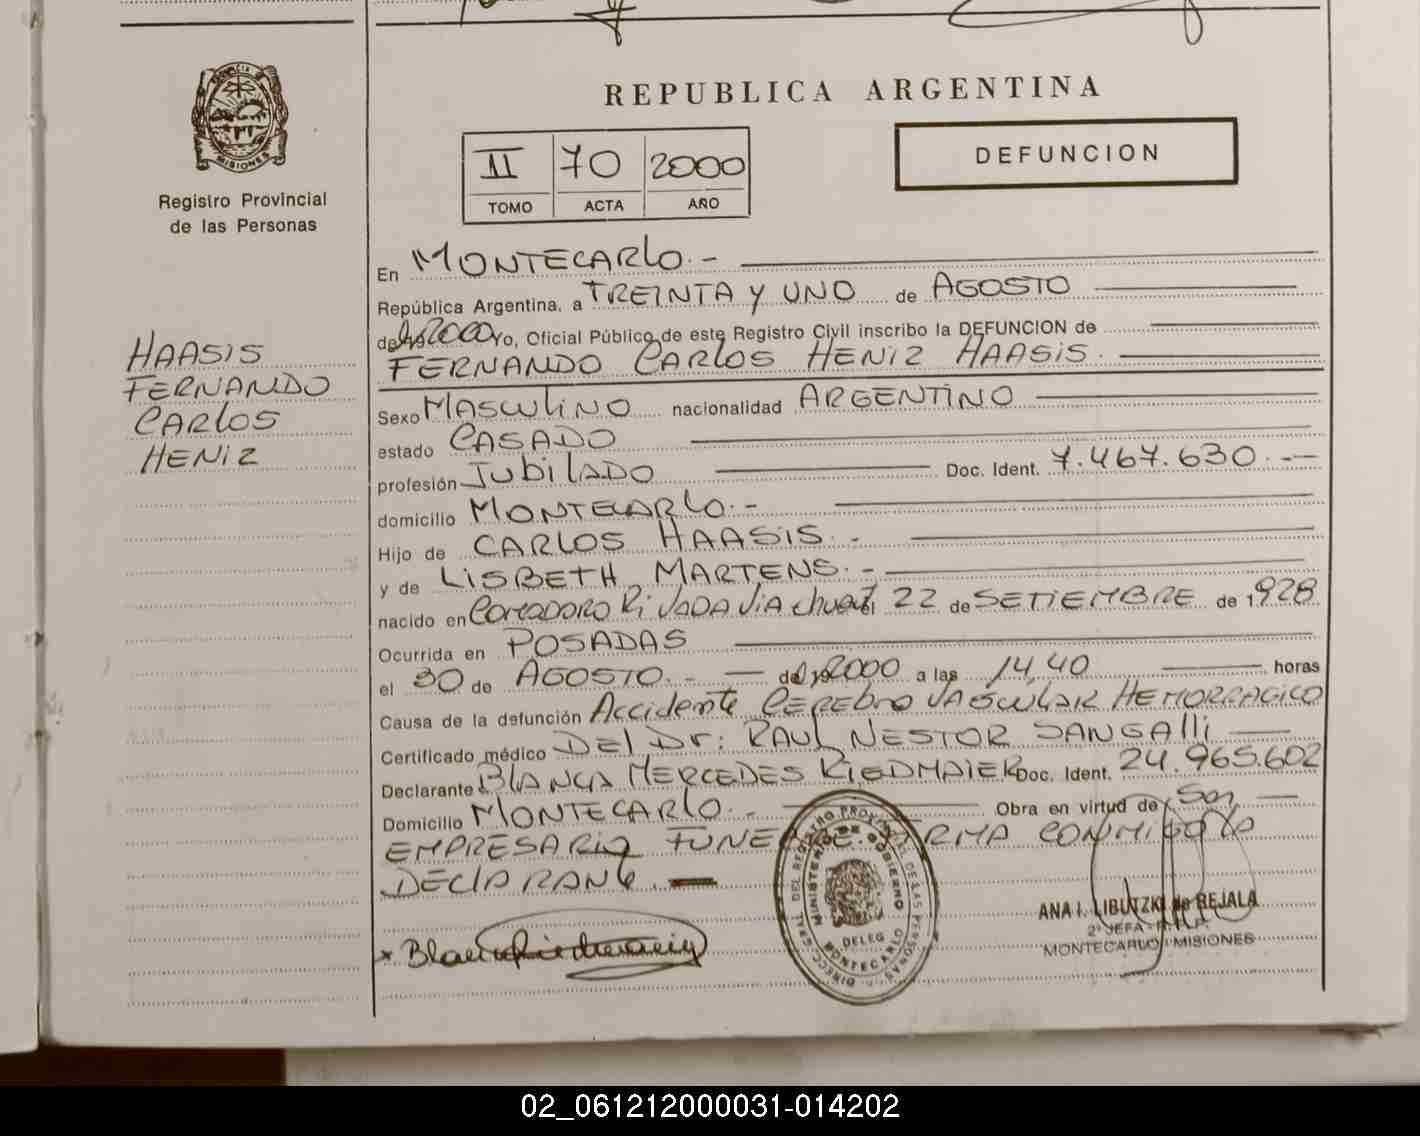 REPUBLICA ARGENTINA
PROVINCIA DE MISIONES
Registro Provincial
de las Personas
II 70 2000
TOMO ACTA AÑO
DEFUNCION
HAASIS
FERNANDO
CARLOS
HENIZ
En MONTECARLO.-
República Argentina, a TREINTA Y UNO de AGOSTO
de 2000 Yo, Oficial Público de este Registro Civil inscribo la DEFUNCION de
FERNANDO CARLOS HENIZ HAASIS.
Sexo MASCULINO nacionalidad ARGENTINO
estado CASADO
profesión JUBILADO Doc. Ident. 7.467.630.-
domicilio MONTECARLO.-
Hijo de CARLOS HAASIS.-
y de LISBETH MARTENS.-
nacido en COMODORO RIVADAVIA chubut el 22 de SETIEMBRE de 1.928
Ocurrida en POSADAS
el 30 de AGOSTO.- de 2000 a las 14,40 horas
Causa de la defunción Accidente CEREBRO VASCULAR HEMORRAGICO
Certificado médico DEl Dr: RAUL NESTOR SANGAlli
Declarante BLANCA MERCEDES RIEDMAIER Doc. Ident. 24.965.602
Domicilio MONTECARLO.- Obra en virtud de Ser
EMPRESARIA FUNEBRE. FIRMA CONMIGO LA
DECLARANTE.
DIRECC. GRAL. DEL REGISTRO PROVINCIAL DE LAS PERSONAS
MINISTERIO DE GOBIERNO
DELEG
MONTECARLO
ANA I. LIBUTZKI de REJALA
2º JEFA R.P.P.
MONTECARLO - MISIONES
02_061212000031-014202